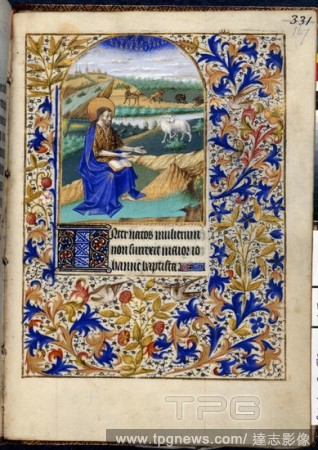 331
167
Inter natos mulierum
non surrexit maior io
hanne baptista
TPG
www.tpgnews.com/ 達志影像